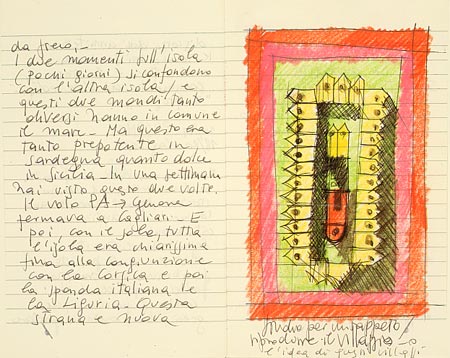 da
I due momenti sull'isola
(pochi giorni) si confondono
con l'altra isola / e
questi due mondi tanto
diversi hanno in comune
il mare - Ma questo era
tanto prepotente in
Sardegna quanto dolce
in Sicilia - In una settimana
hai visto questo due volte.
Il volo PA → Genova
fermava a Cagliari - E
poi, con il sole, tutta
l'isola era chiarissima
fino alla congiunzione
con la Corsica e poi
la sponda italiana e
la Liguria - Questa
strana e nuova
studio per un tappeto
il villaggio - o
l'idea di questi villaggi